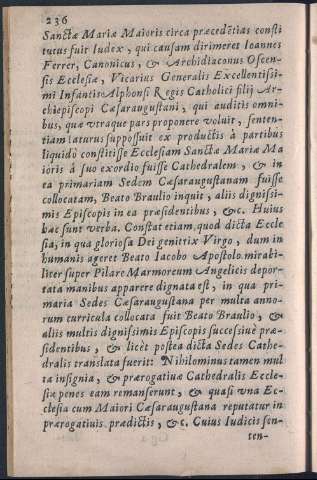 236
Sanctæ Mariæ Maioris circa præcedētias consti
tutus fuit Iudex, qui causam dirimeret Ioannes
Ferrer, Canonicus, & Archidiaconus Oscen-
sis Ecclesiæ, Vicarius Generalis Excellentissi-
mi Infantis Alphonsi Regis Catholici filij Ar-
chiepiscopi Cæsaraugustani, qui auditis omni-
bus, quæ vtraque pars proponere voluit, senten-
tiam laturus suppossuit ex productis à partibus
liquidò constitisse Ecclesiam Sanctæ Mariæ Ma
ioris à suo exordio fuisse Cathedralem, & in
ea primariam Sedem Cæsaraugustanam fuisse
collocatam, Beato Braulio inquit, aliis dignissi-
mis Episcopis in ea præsidentibus, &c. Huius
hæc sunt verba. Constat etiam, quod dicta Eccle
sia, in qua gloriosa Dei genitrix Virgo, dum in
humanis ageret Beato Iacobo Apostolo mirabi-
liter super Pilare Marmoreum Angelicis depor-
tata manibus apparere dignata est, in qua pri-
maria Sedes Cæsaraugustana per multa anno-
rum curricula collocata fuit Beato Braulio, &
aliis multis dignissimis Episcopis successiuè præ-
sidentibus, & licèt postea dicta Sedes Cathe-
dralis translata fuerit: Nihilominus tamen mul
ta insignia, & prærogatiuæ Cathedralis Eccle-
siæ penes eam remanserunt, & quasi vna Ec-
clesia cum Maiori Cæsaraugustana reputatur in
prærogatiuis prædictis, &c. Cuius Iudicis sen-
ten-